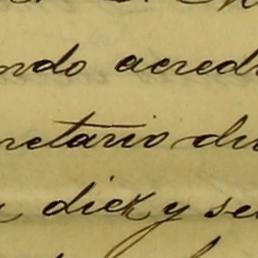 ndo acred
retario du
diez y se